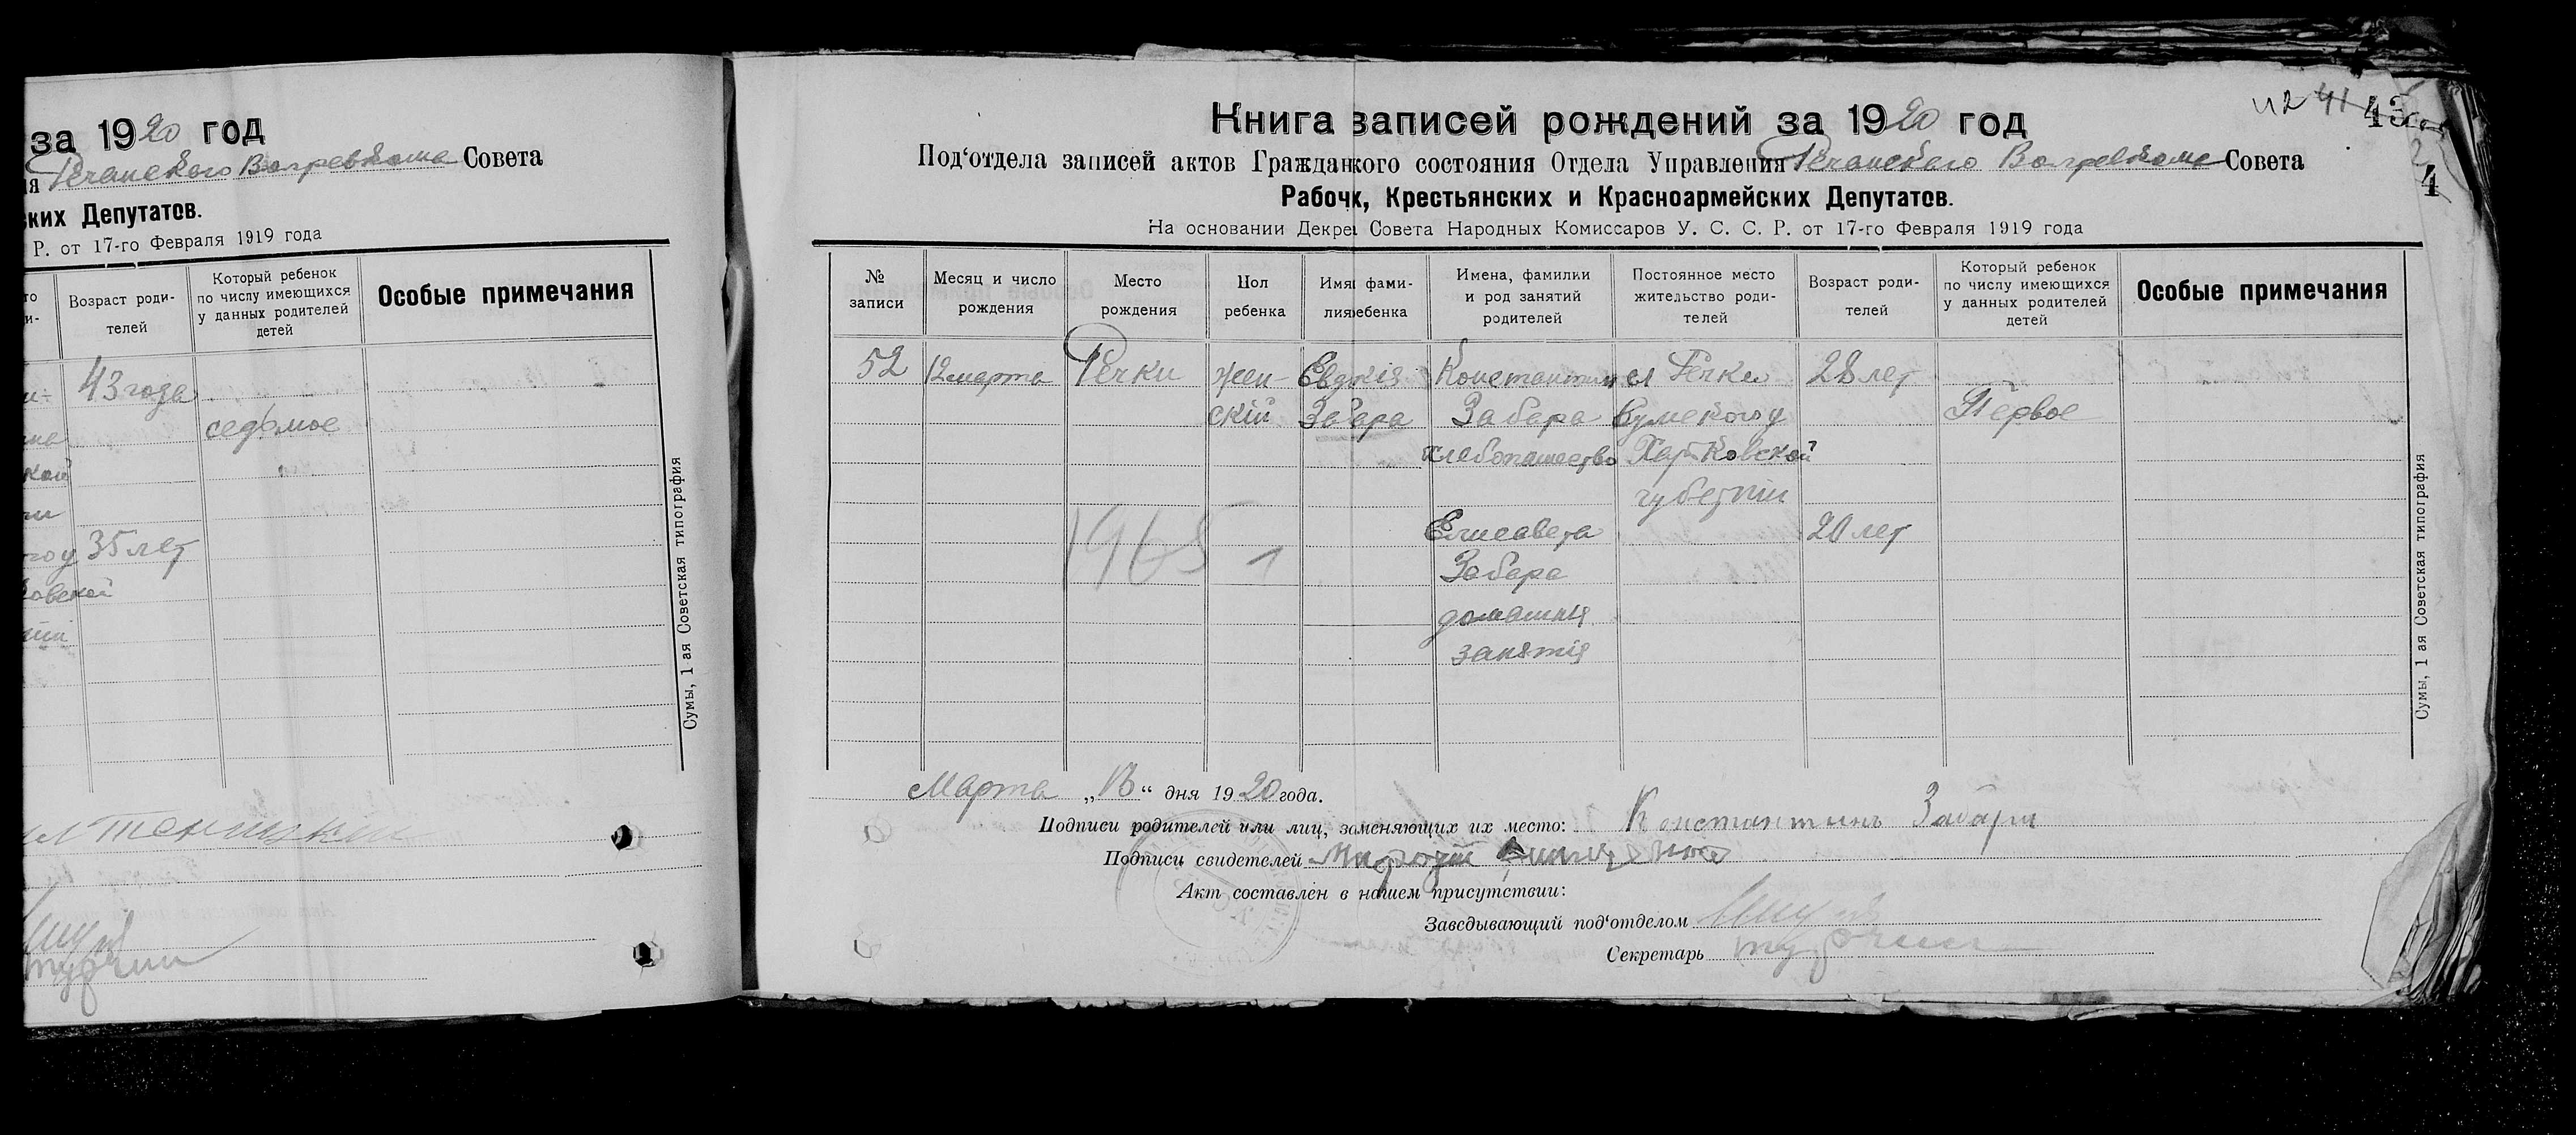 за 1920 год
Речанского Волревкома Совета
ских Депутатов.
Р. от 17-го Февраля 1919 года
Возраст роди-
телей
Который ребенок
по числу имеющихся
у данных родителей
детей
Особые примечания
43 года
седьмое
35 лет
Сумы, 1 ая Советская типография
42 41 43
4
Книга записей рождений за 1920 год
Под‘отдела записей актов Гражданкого состояния Отдела Управления Речанского Волревкома Совета
Рабочх, Крестьянских и Красноармейских Депутатов.
На основании Декрет Совета Народных Комиссаров У. С. С. Р. от 17-го Февраля 1919 года
№
записи
Месяц и число
рождения
Место
рождения
Пол
ребенка
Имя фами-
лия ребенка
Имена, фамилии
и род занятий
родителей
Постоянное место
жительство роди-
телей
Возраст роди-
телей
Который ребенок
по числу имеющихся
у данных родителей
детей
Особые примечания
52
12 марта
Речки
жен-
скій
Евдокія
Забара
Константин
Забара
хлебопашество
Елисавета
Забара
домашнія
занятія
с Речки
Сумского у
Харьковской
губерніи
28 лет
20 лет
Первое
1965 1
Сумы, 1 ая Советская типография
Марта „13“ дня 1920 года.
Подписи родителей или лиц, заменяющих их место: Константинъ Забара
Подписи свидетелей
Акт составлен в нашем присутствии:
Заведывающий под‘отделом
Секретарь